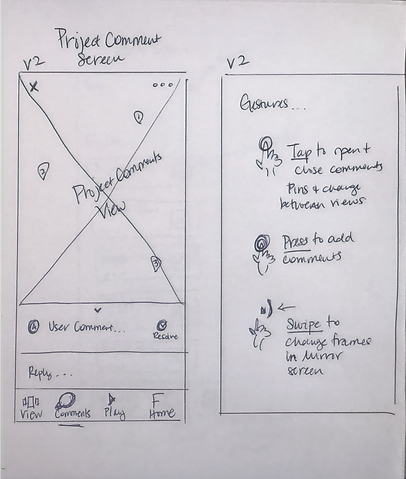 Project Comment
Screen
V2
X
1
2
Project Comments
View
3
User Comment...
Resolve
Reply...
View
Comments
Play
F
Home
V2
Gestures...
Tap to open &
close comments
Pins & change
between views
Press to add
comments
Swipe to
change frames
in mirror
screen